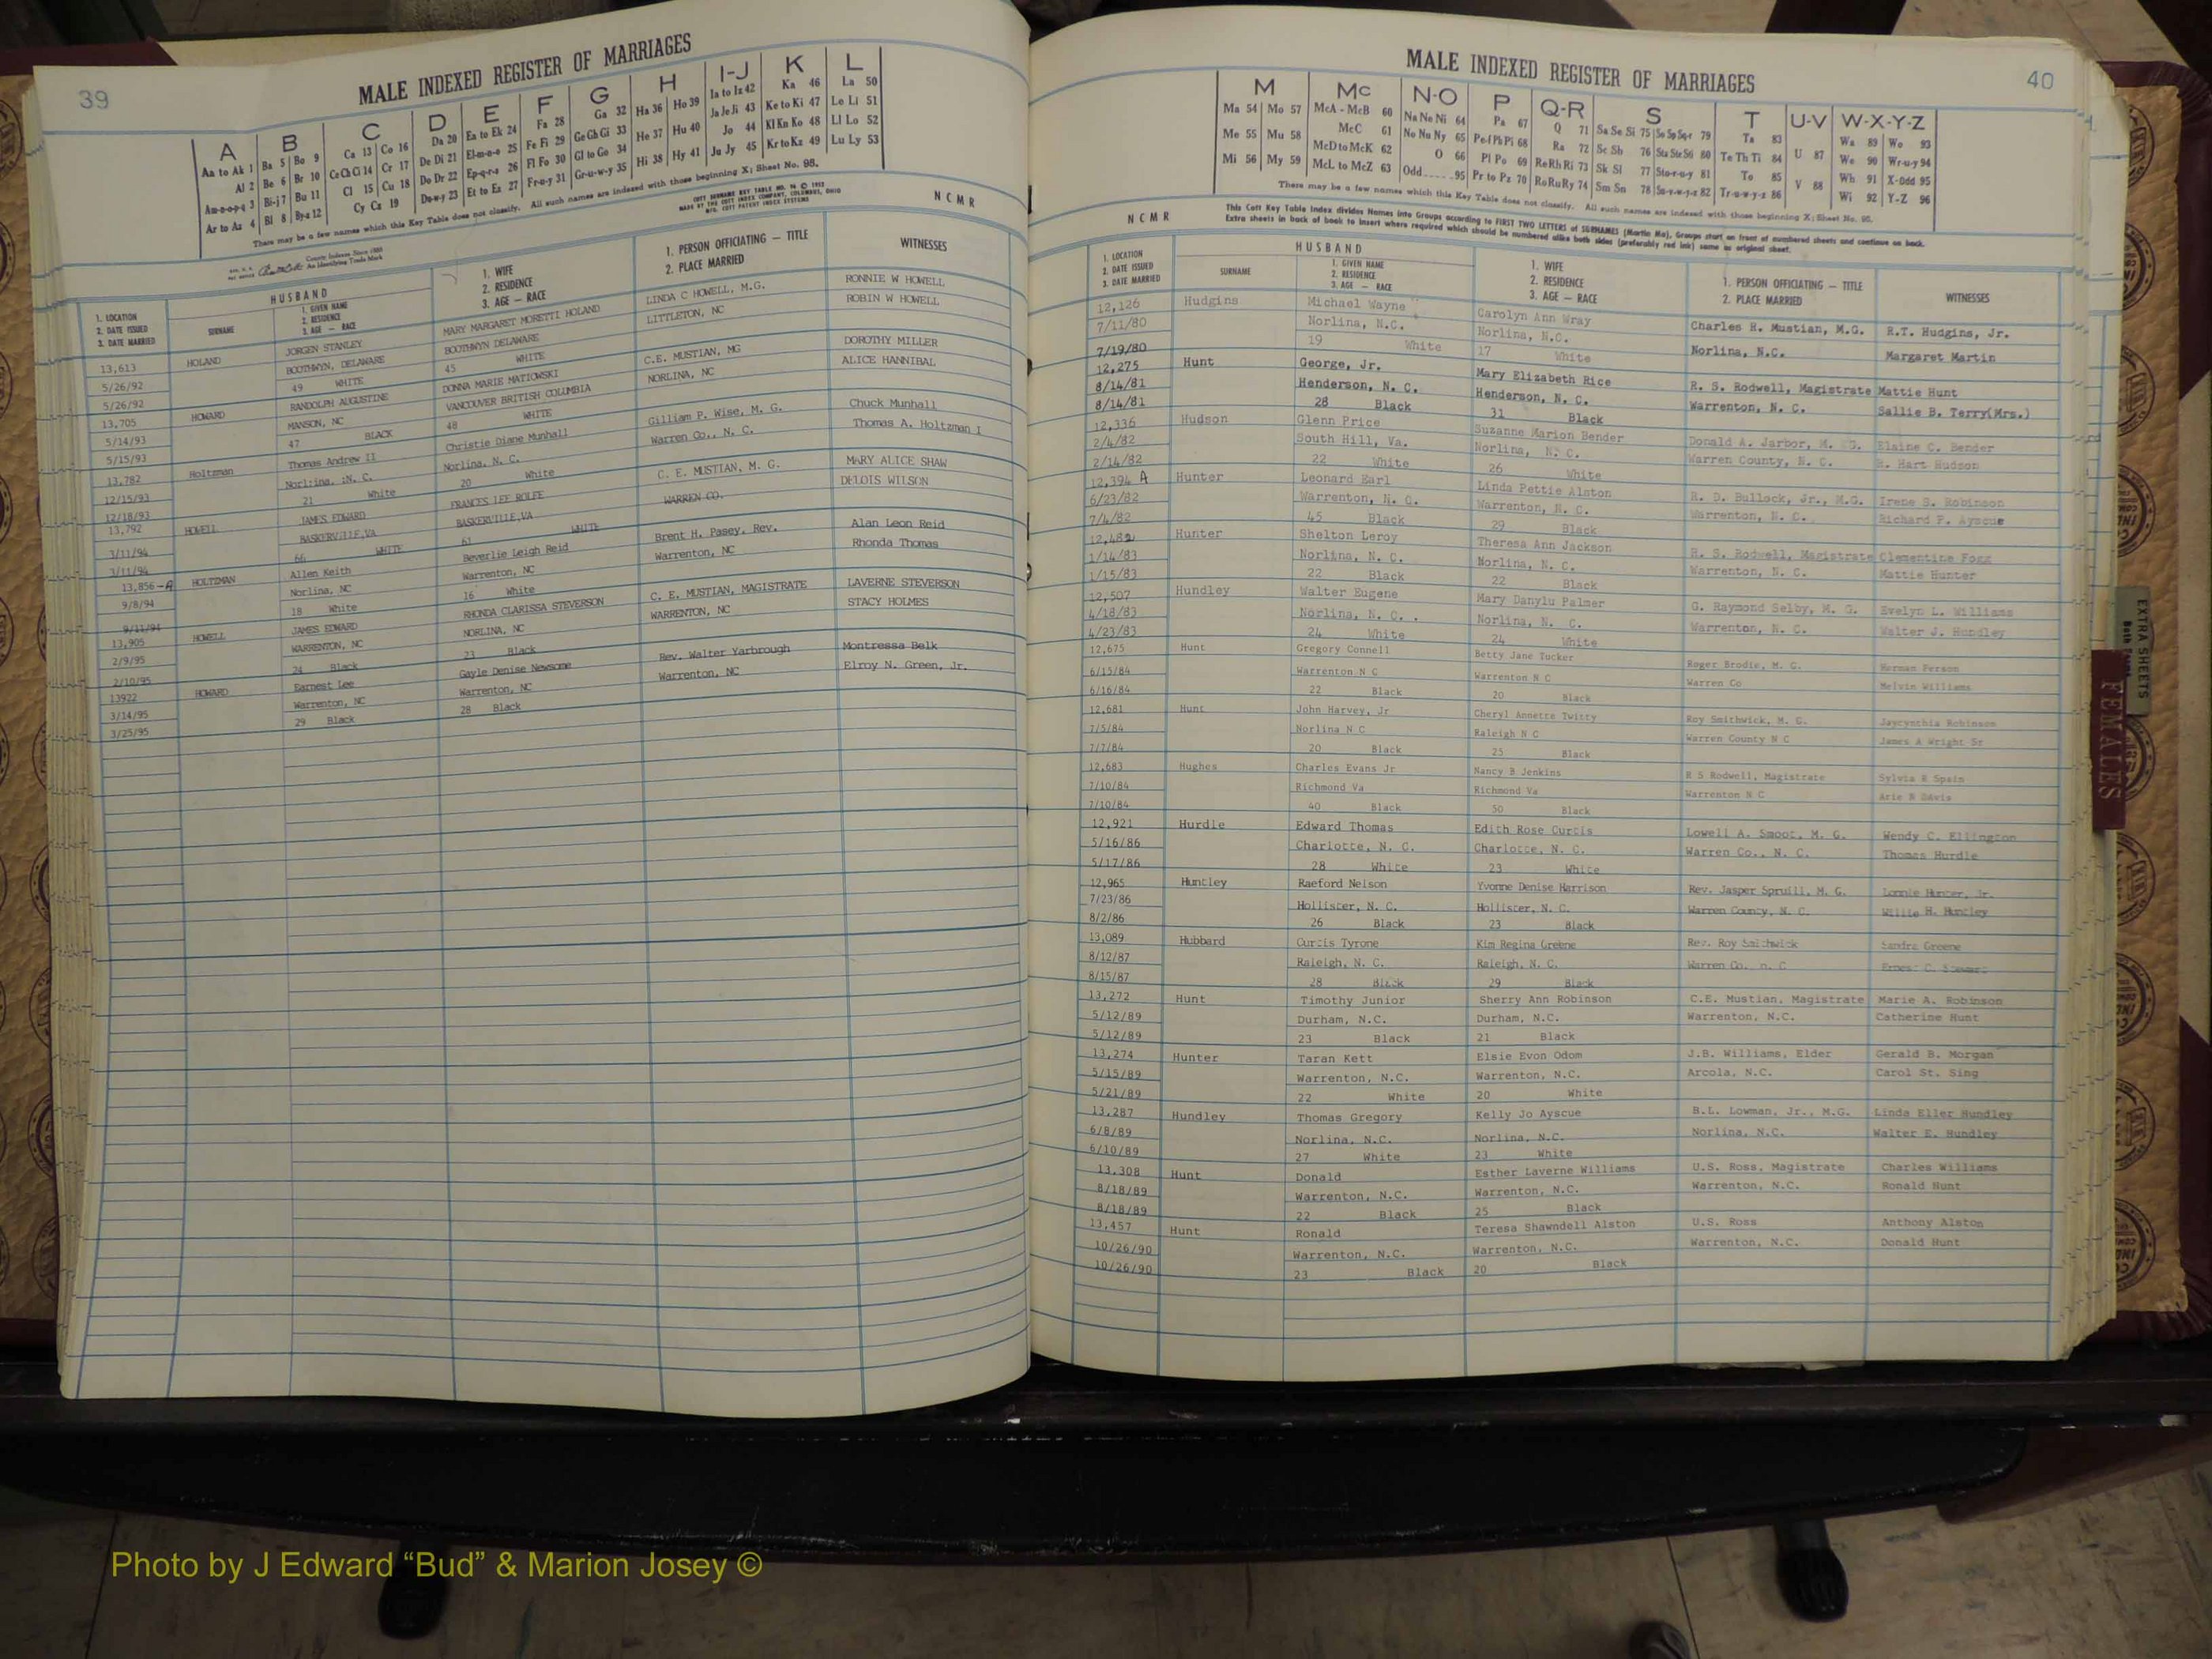 39
MALE INDEXED REGISTER OF MARRIAGES
A B C D E F G H I-J K L
Aa to Ak 1 Ba 5 Bo 9 Ca 13 Co 16 Da 20 Ea to Ek 24 Fa 28 Ga 32 Ha 36 Ho 39 Ia to Iz 42 Ka 46 La 50
Al 2 Be 6 Br 10 Ce Ch Ci 14 Cr 17 De Di 21 El-m-n-o 25 Fe Fi 29 Ge Gh Gi 33 He 37 Hu 40 Ja Je Ji 43 Ke to Ki 47 Le Li 51
Am-n-o-p-q 3 Bi-j 7 Bu 11 Cl 15 Cu 18 Do Dr 22 Ep-q-r-s 26 Fl Fo 30 Gl to Go 34 Hi 38 Hy 41 Jo 44 Kl Kn Ko 48 Ll Lo 52
Ar to Az 4 Bl 8 By-z 12 Cy Cz 19 Du-w-y 23 Et to Ez 27 Fr-u-y 31 Gr-u-w-y 35 Ju Jy 45 Kr to Kz 49 Lu Ly 53
There may be a few names which this Key Table does not classify. All such names are indexed with those beginning X; Sheet No. 98.
County Indexes Since 1888
An Identifying Trade Mark
N C M R
HUSBAND
1. LOCATION
2. DATE ISSUED
3. DATE MARRIED
SURNAME
1. GIVEN NAME
2. RESIDENCE
3. AGE — RACE
1. WIFE
2. RESIDENCE
3. AGE — RACE
1. PERSON OFFICIATING — TITLE
2. PLACE MARRIED
WITNESSES
13,613 HOLAND JORGEN STANLEY MARY MARGARET MORETTI HOLAND LINDA C HOWELL, M.G. RONNIE W HOWELL
5/26/92 BOOTHWYN, DELAWARE BOOTHWYN DELAWARE LITTLETON, NC ROBIN W HOWELL
5/26/92 49 WHITE 45 WHITE
13,705 HOWARD RANDOLPH AUGUSTINE DONNA MARIE MATIOWSKI C.E. MUSTIAN, MG DOROTHY MILLER
5/14/93 MANSON, NC VANCOUVER BRITISH COLUMBIA NORLINA, NC ALICE HANNIBAL
5/15/93 47 BLACK 48 WHITE
13,782 Holtzman Thomas Andrew II Christie Diane Munhall Gilliam P. Wise, M. G. Chuck Munhall
12/15/93 Norlina, N. C. Norlina, N. C. Warren Co., N. C. Thomas A. Holtzman I
12/18/93 21 White 20 White
13,792 HOWELL JAMES EDWARD FRANCES LEE ROLFE C. E. MUSTIAN, M. G. MARY ALICE SHAW
3/11/94 BASKERVILLE,VA BASKERVILLE,VA WARREN CO. DELOIS WILSON
3/11/94 66 WHITE 61 WHITE
13,856-A HOLTZMAN Allen Keith Beverlie Leigh Reid Brent H. Pasey, Rev. Alan Leon Reid
9/8/94 Norlina, NC Warrenton, NC Warrenton, NC Rhonda Thomas
9/11/94 18 White 16 White
13,905 HOWELL JAMES EDWARD RHONDA CLARISSA STEVERSON C. E. MUSTIAN, MAGISTRATE LAVERNE STEVERSON
2/9/95 WARRENTON, NC NORLINA, NC WARRENTON, NC STACY HOLMES
2/10/95 24 Black 23 Black
13922 HOWARD Earnest Lee Gayle Denise Newsome Rev. Walter Yarbrough Montressa Belk
3/14/95 Warrenton, NC Warrenton, NC Warrenton, NC Elroy N. Green, Jr.
3/25/95 29 Black 28 Black
40
MALE INDEXED REGISTER OF MARRIAGES
M Mc N-O P Q-R S T U-V W-X-Y-Z
Ma 54 Mo 57 McA - McB 60 Na Ne Ni 64 Pa 67 Q 71 Sa Se Si 75 So Sp Sq-r 79 Ta 83 U 87 Wa 89 Wo 93
Me 55 Mu 58 McC 61 No Nu Ny 65 Pe-f Ph Pi 68 Ra 72 Sc Sh 76 Sta Ste Sti 80 Te Th Ti 84 V 88 We 90 Wr-u-y 94
Mi 56 My 59 McD to McK 62 O 66 Pl Po 69 Re Rh Ri 73 Sk Sl 77 Sto-r-u-y 81 To 85 Wh 91 X-Odd 95
McL to McZ 63 Odd 95 Pr to Pz 70 Ro Ru Ry 74 Sm Sn 78 Su-v-w-y-z 82 Tr-u-w-y-z 86 Wi 92 Y-Z 96
There may be a few names which this Key Table does not classify. All such names are indexed with those beginning X; Sheet No. 98.
This Cott Key Table Index divides Names into Groups according to FIRST TWO LETTERS of SURNAMES (Martin Ma). Groups start on front of numbered sheets and continue on back.
Extra sheets in back of book to insert where required which should be numbered alike both sides (preferably red ink) same as original sheet.
N C M R
HUSBAND
1. LOCATION
2. DATE ISSUED
3. DATE MARRIED
SURNAME
1. GIVEN NAME
2. RESIDENCE
3. AGE — RACE
1. WIFE
2. RESIDENCE
3. AGE — RACE
1. PERSON OFFICIATING — TITLE
2. PLACE MARRIED
WITNESSES
12,126 Hudgins Michael Wayne Carolyn Ann Wray Charles H. Mustian, M.G. R.T. Hudgins, Jr.
7/11/80 Norlina, N.C. Norlina, N.C. Norlina, N.C. Margaret Martin
7/19/80 19 White 17 White
12,275 Hunt George, Jr. Mary Elizabeth Rice R. S. Rodwell, Magistrate Mattie Hunt
8/14/81 Henderson, N. C. Henderson, N. C. Warrenton, N. C. Sallie B. Terry(Mrs.)
8/14/81 28 Black 31 Black
12,336 Hudson Glenn Price Suzanne Marion Bender Donald A. Jarbor, M. G. Elaine C. Bender
2/4/82 South Hill, Va. Norlina, N. C. Warren County, N. C. Hart Hudson
2/14/82 22 White 26 White
12,394 A Hunter Leonard Earl Linda Pettie Alston R. D. Bullock, Jr., M.G. Irene S. Robinson
6/23/82 Warrenton, N. C. Warrenton, N. C. Warrenton, N. C. Richard P. Ayscue
7/4/82 45 Black 29 Black
12,482 Hunter Shelton Leroy Theresa Ann Jackson R. S. Rodwell, Magistrate Clementine Fogg
1/14/83 Norlina, N. C. Norlina, N. C. Warrenton, N. C. Mattie Hunter
1/15/83 22 Black 22 Black
12,507 Hundley Walter Eugene Mary Danylu Palmer G. Raymond Selby, M. G. Evelyn L. Williams
4/18/83 Norlina, N. C. . Norlina, N. C. Warrenton, N. C. Walter J. Hundley
4/23/83 24 White 24 White
12,675 Hunt Gregory Connell Betty Jane Tucker Roger Brodie, M. G. Herman Person
6/15/84 Warrenton N C Warrenton N C Warren Co Melvin Williams
6/16/84 22 Black 20 Black
12,681 Hunt John Harvey, Jr Cheryl Annette Twitty Roy Smithwick, M. G. Jaycynthia Robinson
7/5/84 Norlina N C Raleigh N C Warren County N C James A Wright Sr
7/7/84 20 Black 25 Black
12,683 Hughes Charles Evans Jr Nancy B Jenkins R S Rodwell, Magistrate Sylvia R Spain
7/10/84 Richmond Va Richmond Va Warrenton N C Arie N Davis
7/10/84 40 Black 50 Black
12,921 Hurdle Edward Thomas Edith Rose Curtis Lowell A. Smoot, M. G. Wendy C. Ellington
5/16/86 Charlotte, N. C. Charlotte, N. C. Warren Co., N. C. Thomas Hurdle
5/17/86 28 White 23 White
12,965 Huntley Raeford Nelson Yvonne Denise Harrison Rev. Jasper Spruill, M. G. Lonnie Hunter, Jr.
7/23/86 Hollister, N. C. Hollister, N. C. Warren County, N. C. Willie H. Huntley
8/2/86 26 Black 23 Black
13,089 Hubbard Curtis Tyrone Kim Regina Greene Rev. Roy Smithwick Sandra Greene
8/12/87 Raleigh, N. C. Raleigh, N. C. Warren Co. n. C Ernest C. Stewart
8/15/87 28 Black 29 Black
13,272 Hunt Timothy Junior Sherry Ann Robinson C.E. Mustian, Magistrate Marie A. Robinson
5/12/89 Durham, N.C. Durham, N.C. Warrenton, N.C. Catherine Hunt
5/12/89 23 Black 21 Black
13,274 Hunter Taran Kett Elsie Evon Odom J.B. Williams, Elder Gerald B. Morgan
5/15/89 Warrenton, N.C. Warrenton, N.C. Arcola, N.C. Carol St. Sing
5/21/89 22 White 20 White
13,287 Hundley Thomas Gregory Kelly Jo Ayscue B.L. Lowman, Jr., M.G. Linda Eller Hundley
6/8/89 Norlina, N.C. Norlina, N.C. Norlina, N.C. Walter E. Hundley
6/10/89 27 White 23 White
13,308 Hunt Donald Esther Laverne Williams U.S. Ross, Magistrate Charles Williams
8/18/89 Warrenton, N.C. Warrenton, N.C. Warrenton, N.C. Ronald Hunt
8/18/89 22 Black 25 Black
13,457 Hunt Ronald Teresa Shawndell Alston U.S. Ross Anthony Alston
10/26/90 Warrenton, N.C. Warrenton, N.C. Warrenton, N.C. Donald Hunt
10/26/90 23 Black 20 Black
EXTRA SHEETS
FEMALES
Photo by J Edward “Bud” & Marion Josey ©